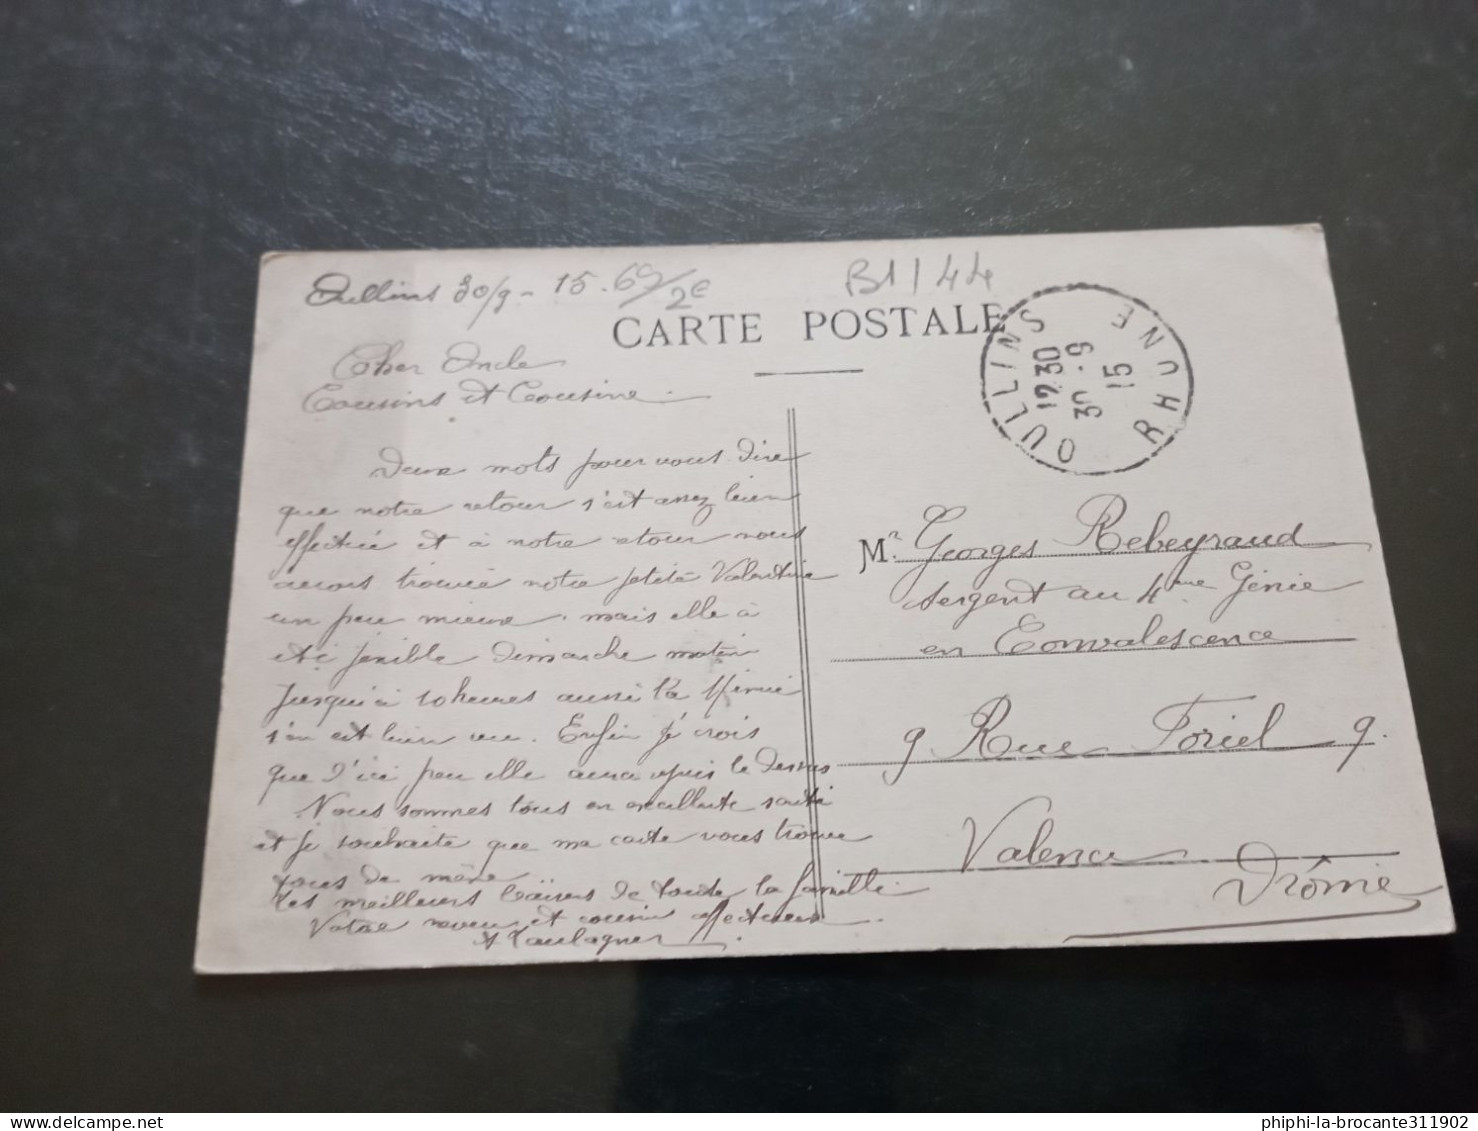 Oullins 30/9 - 15. 69/2e
B1/44
CARTE POSTALE
OULLINS
RHONE
12.30
30 - 9
15
Cher Oncle
Cousins et Cousine.
Deux mots pour vous dire
que notre retour s'est assez bien
effectuée et à notre retour nous
avons trouvée notre petite Valentine
un peu mieux, mais elle a
été pénible Dimanche matin
jusqu'à 10 heures aussi la
s'en est bien vu. Enfin je crois
que d'ici peu elle aura repris le dessus
Nous sommes tous en excellente santé
et je souhaite que ma carte vous trouve
tous de même
Les meilleurs baisers de toute la famille
Votre neveu et cousin affectueux
Mr. Georges Rebeyraud
Sergent au 4me Génie
en Convalescence
9 Rue Foriel 9.
Valence
Drôme
phiphi-la-brocante311902